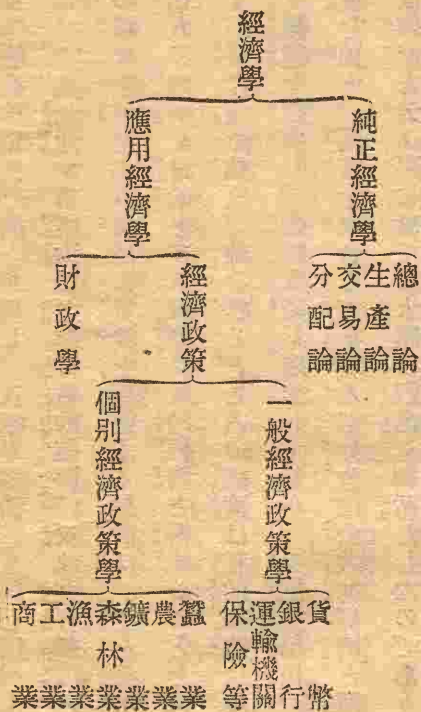 經濟學
純正經濟學
總論
生產論
交易論
分配論
應用經濟學
經濟政策
一般經濟政策學
貨幣
銀行
運輸機關
保險等
個別經濟政策學
蠶業
農業
鑛業
森林業
漁業
工業
商業
財政學